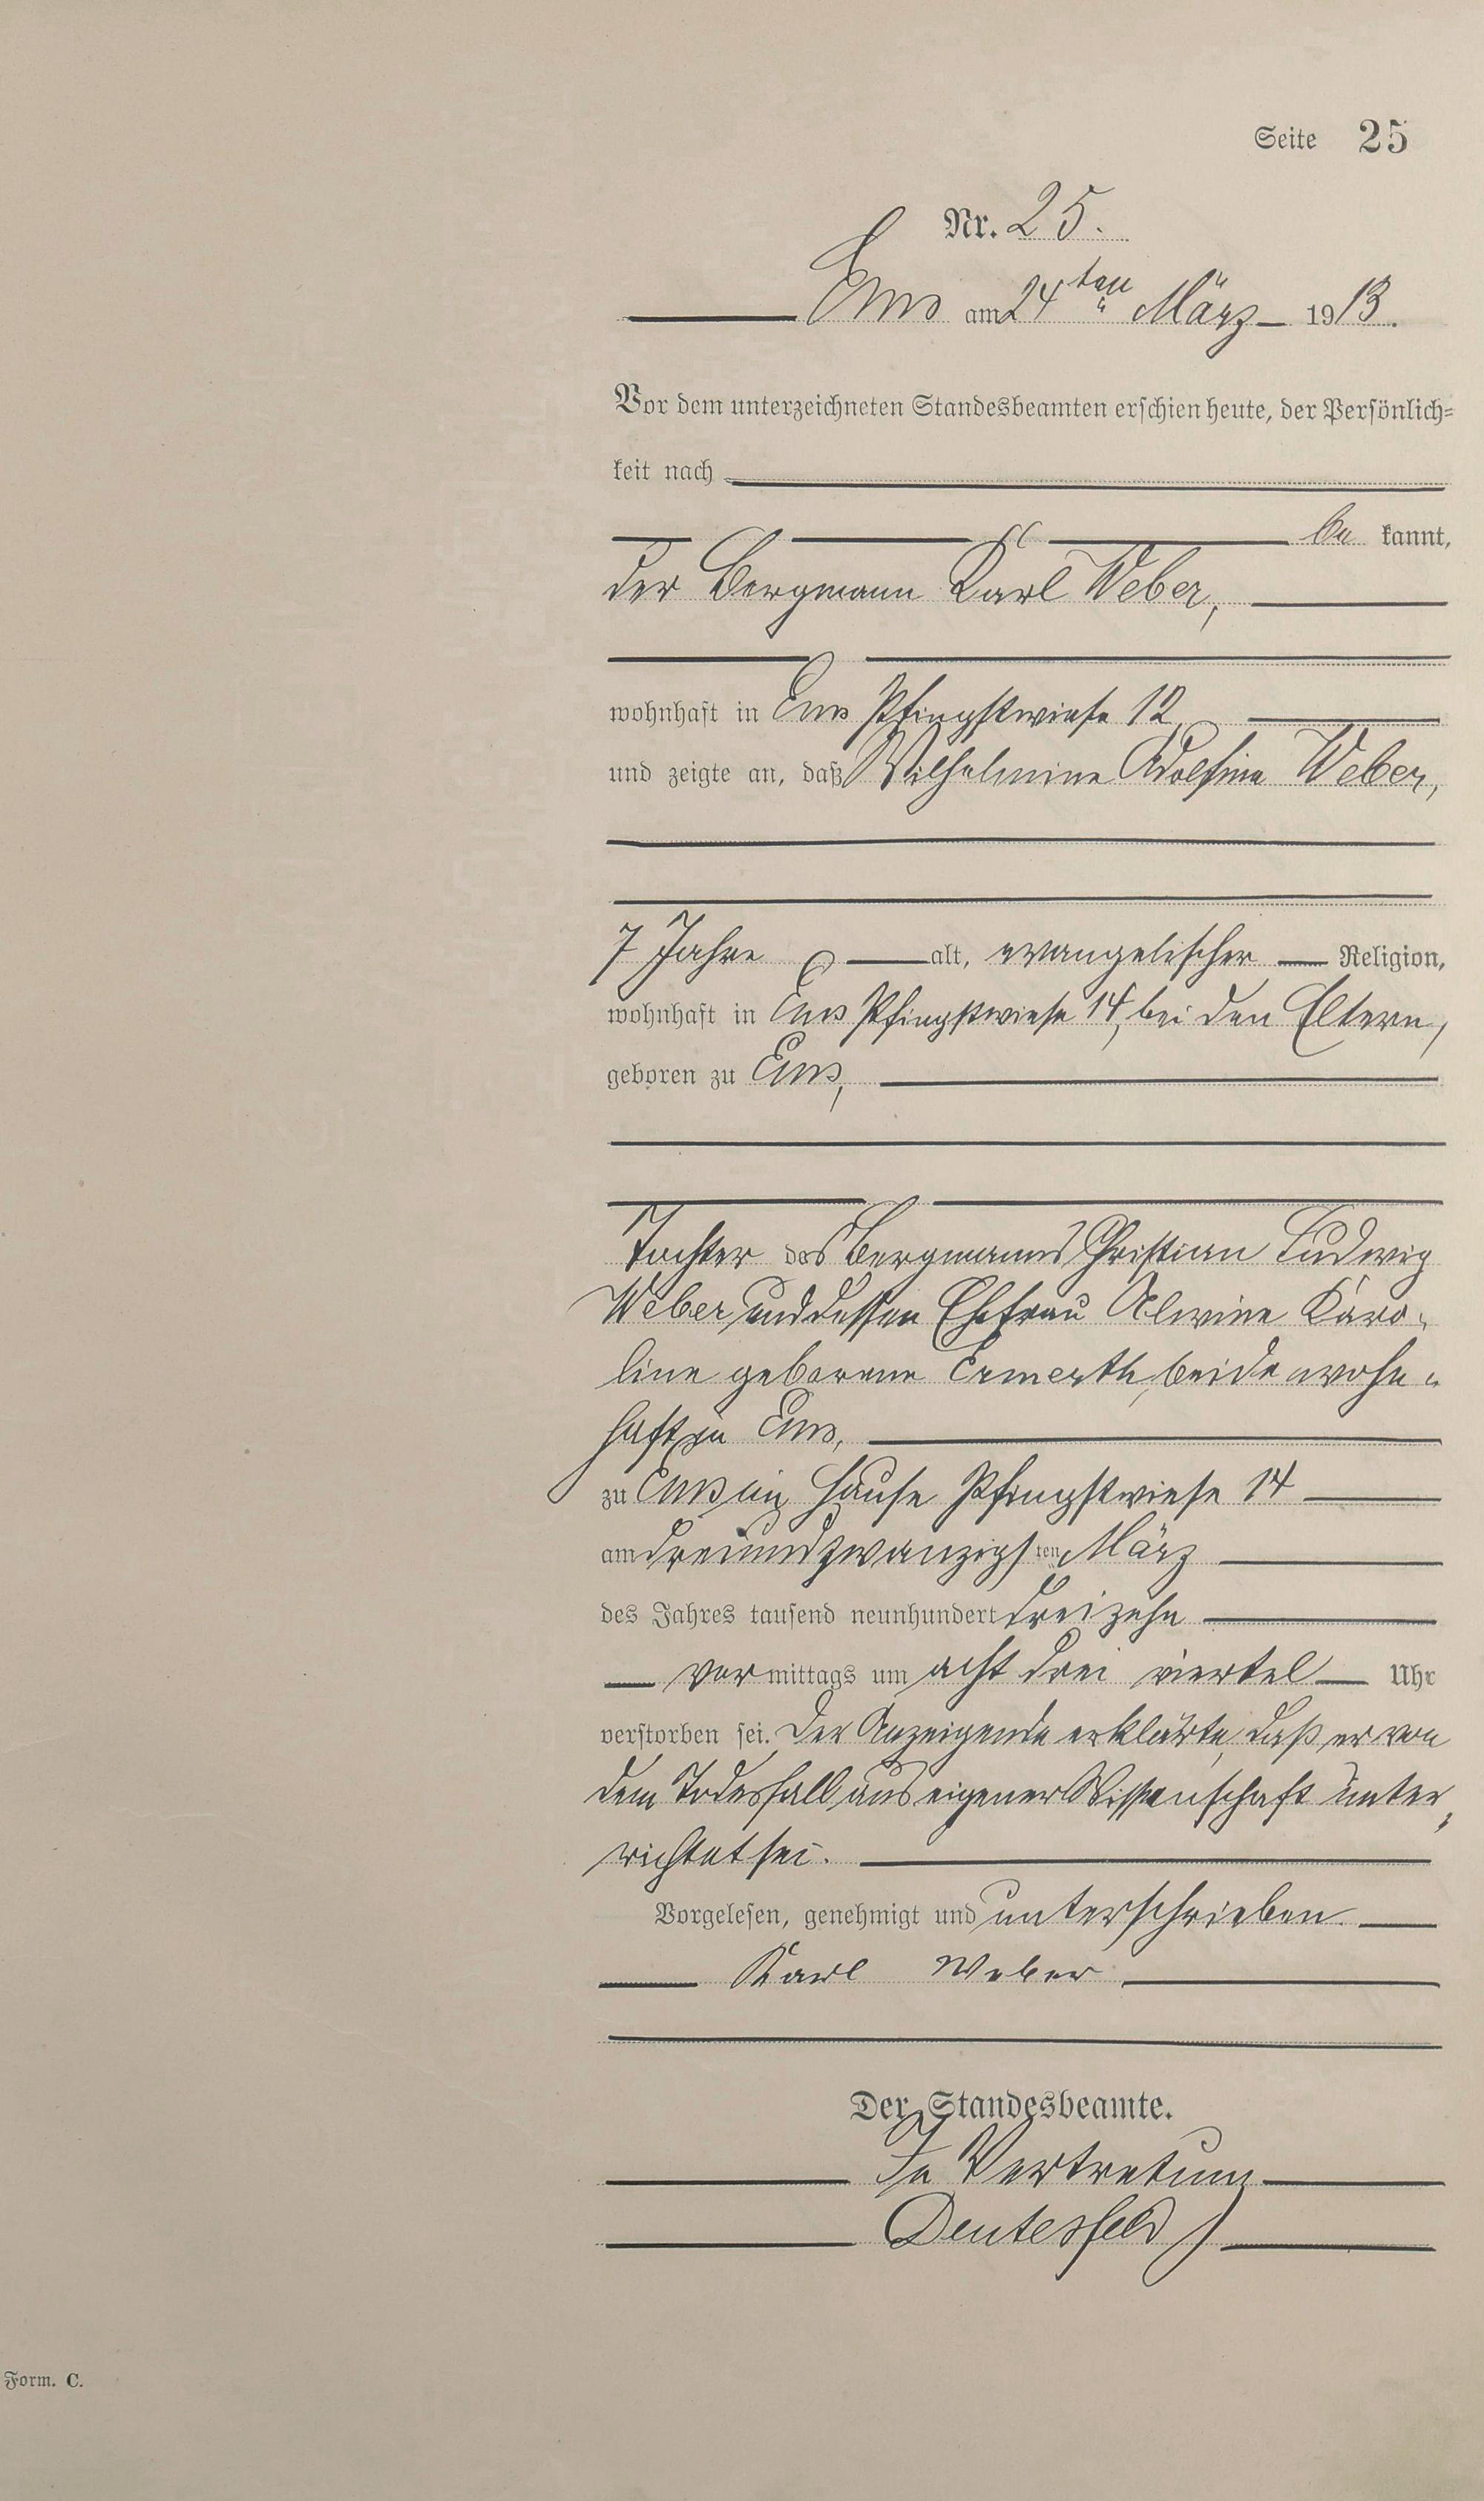 Seite 25
Nr. 25.
Ems am 24ten März 1913.
Vor dem unterzeichneten Standesbeamten erschien heute, der Persönlich=
keit nach
be kannt,
der Bergmann Karl Weber,
wohnhaft in Ems Pfingstwiese 12
und zeigte an, daß Wilhelmine Adolfine Weber,
7 Jahre alt, evangelischer Religion,
wohnhaft in Ems Pfingstwiese 14, bei den Eltern,
geboren zu Ems,
Tochter des Bergmanns Christian Ludwig
Weber und dessen Ehefrau Alwine Karo-
line geborene Ermerth, beide wohn-
haft zu Ems,
zu Ems im Hause Pfingstwiese 14
am dreiundzwanzigsten März
des Jahres tausend neunhundert dreizehn
vormittags um acht drei viertel Uhr
verstorben sei. Der Anzeigende erklärte, daß er von
dem Todesfall aus eigener Wissenschaft unter-
richtet sei.
Vorgelesen, genehmigt und unterschrieben
Karl Weber
Der Standesbeamte.
In Vertretung
Deutesfeld
Form. C.